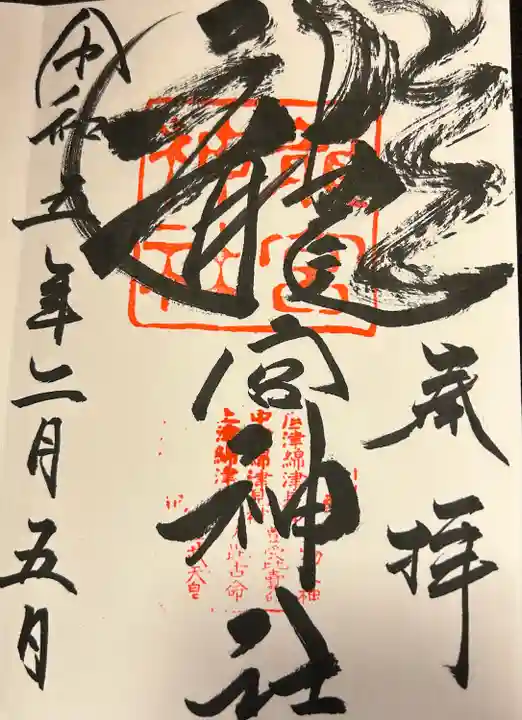 奉拝
龍宮神社
龍宮
神社
底津綿津見
中津綿津見神
上津綿津
令和五年二月五月